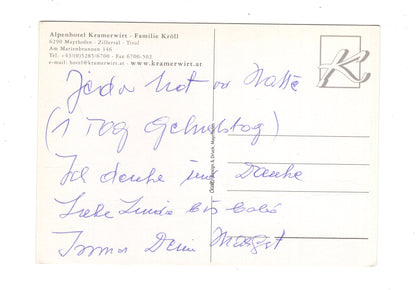 Alpenhotel Kramerwirt - Familie Kröll
6290 Mayrhofen - Zillertal - Tirol
Am Marienbrunnen 346
Tel. +43/(0)5285/6700 - Fax 6700-502
e-mail: hotel@kramerwirt.at - www.kramerwirt.at
K
Jeder hat
(1 Tag Geburtstag)
Ich denke und Danke
Liebe Linda bis bald
Immer Dein